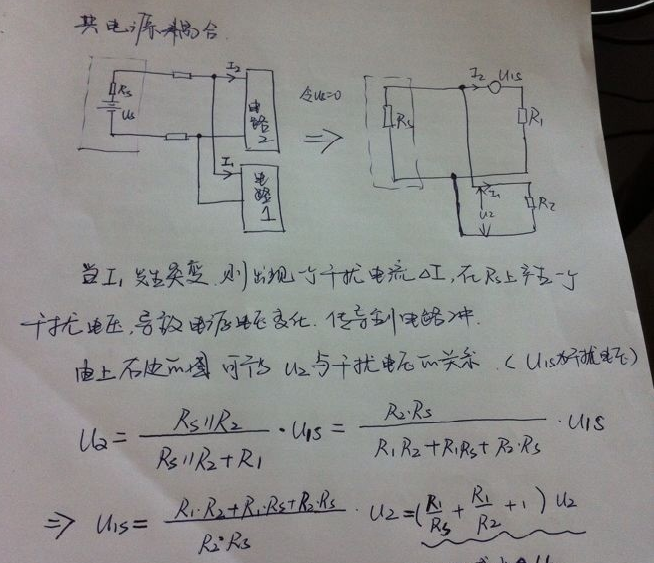 共电源耦合.
I2
Rs
Us
电路2
I1
电路1
令Us=0
⇒
I2
U1S
Rs
R1
I1
U2
R2
当I1发生突变,则出现一个干扰电流ΔI,在Rs上产生一个
干扰电压,导致电源电压变化.传导到电路2中.
由上右边的图可得U2与干扰电压的关系.(U1S为干扰电压)
U2 = Rs//R2 / (Rs//R2+R1) · U1S = R2·Rs / (R1R2+R1Rs+R2·Rs) · U1S
⇒ U1S = (R1·R2+R1·Rs+R2·Rs) / (R2·Rs) · U2 = (R1/Rs + R1/R2 + 1) U2